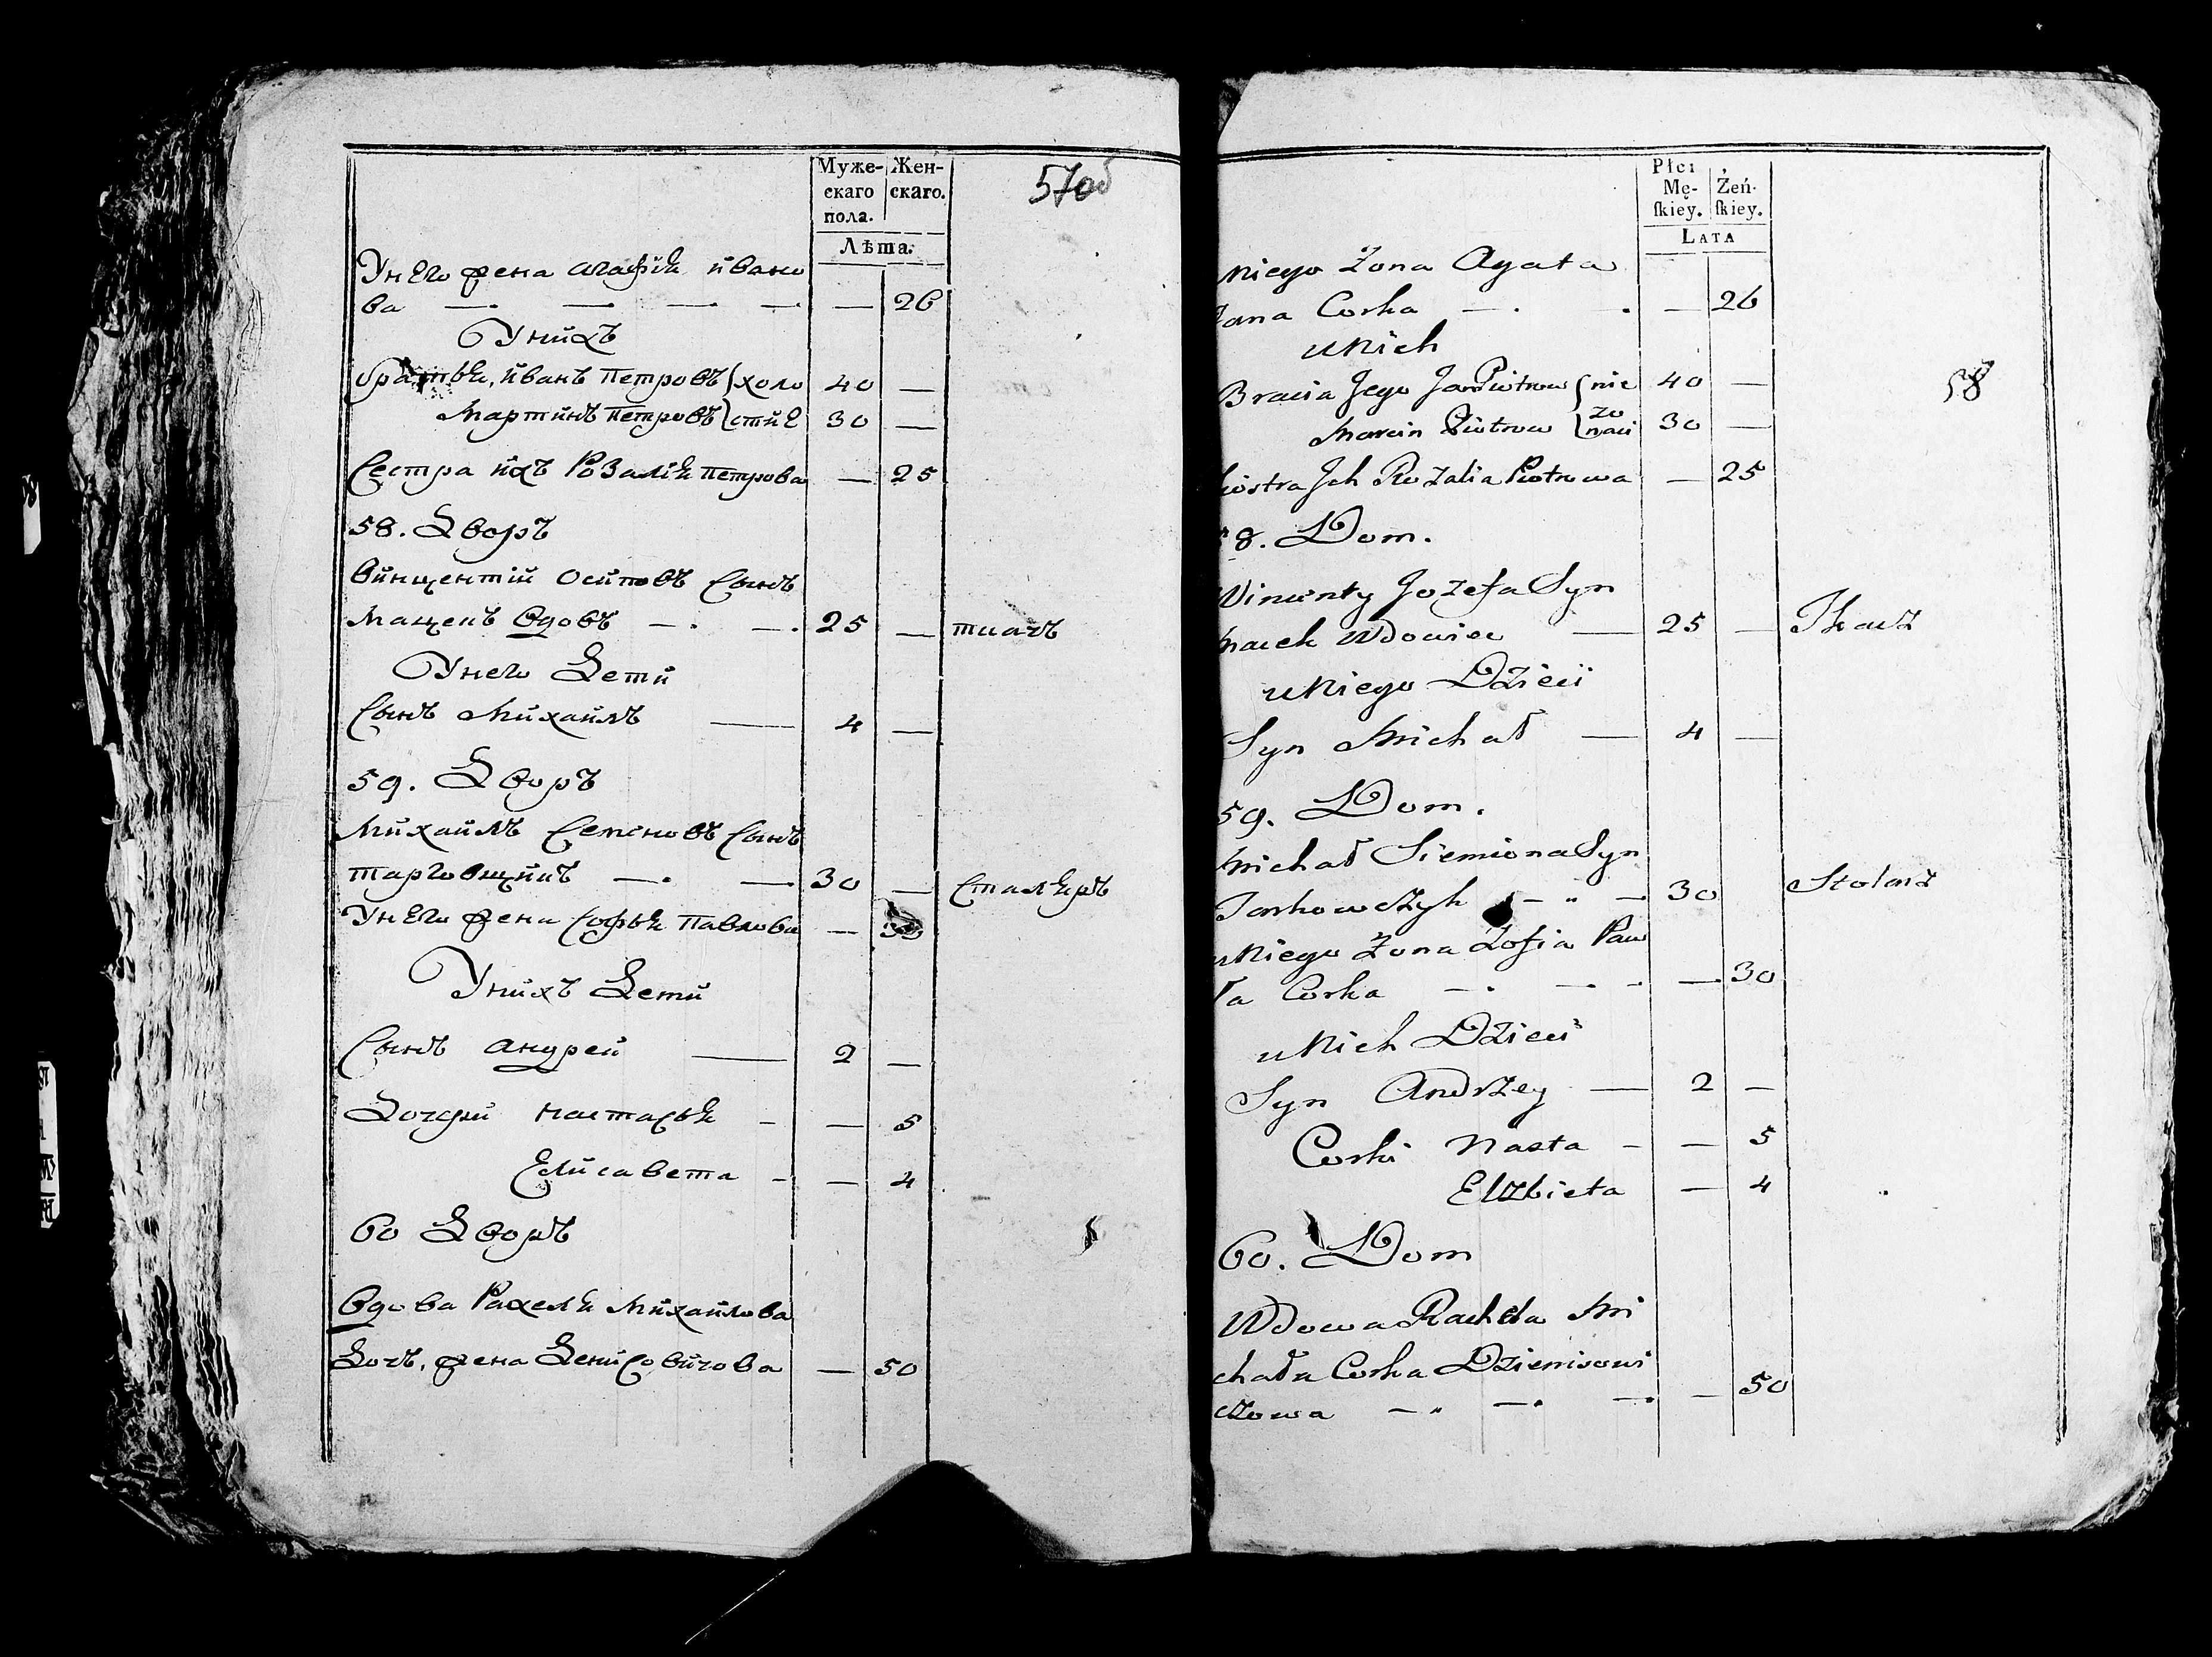 Муже-
скаго
пола.
Жен-
скаго.
Лѣта.
57об
Унего жена агафія ивано
ва — — — — — 26
Унихъ
братья, иванъ Петровъ { холо 40 —
Мартинъ Петровъ { стые 30 —
Сестра ихъ Розалія Петрова — 25
58. Дворъ
Винцентій осиповъ Сынъ
Мацекъ вдовъ — — 25 — ткачъ
Унего Дети
Сынъ Михайлъ — 4 —
59. Дворъ
Михайлъ Семеновъ Сынъ
тарговщикъ — — 30 — Сталяръ
Унего жена Софья Павлова — 30
Унихъ Дети
Сынъ андрей — 2 —
Дочери настасья — — 5
Елисавета — — 4
60 Дворъ
вдова Рахеля Михайлова
Дочъ, жена Денисовичова — 50
Płci
Mę-
skiey.
Żeń-
skiey.
LATA
58
niego Żona Agata
Jana Corka — — 26
u Nich
Bracia Jego Jan Piotrow { nie 40 —
Marcin Piotrow { żo naci 30 —
iostra Ich Rozalia Piotrowa — 25
8. Dom.
Wincenty Jozefa Syn
Macek Wdowiec — 25 — Tkacz
u Niego Dzieci
Syn Michał — 4 —
59. Dom.
Michał Siemiona Syn
Tarhowczyk — " — 30 Stolarz
u Niego Żona Zofia Paw
ła Corka — — — — 30
u Nich Dzieci
Syn Andrzey — 2 —
Corki Nasta — — 5
Elzbieta — 4
60. Dom
Wdowa Rachela Mi
chała Corka Dzienisowi
czowa — " — — — 50